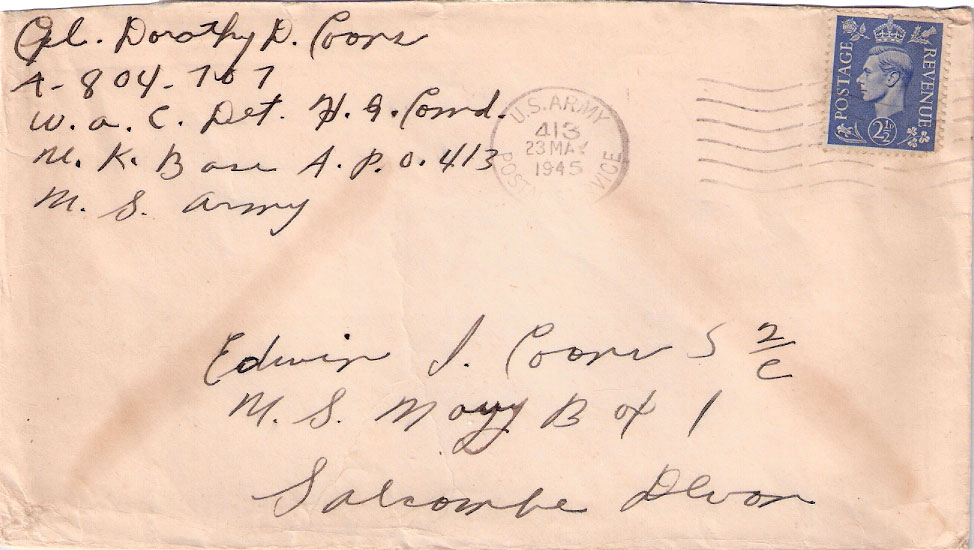 Cpl. Dorothy D. Coons
A-804-767
W.A.C. Det. H.Q. Comd.
U.K. Base A.P.O. 413
U.S. Army
U.S. ARMY
413
23 MAY
1945
POSTAL VICE
POSTAGE REVENUE
2½D
Edwin J. Coons S 2/c
U.S. Navy Box 1
Salcombe Devon